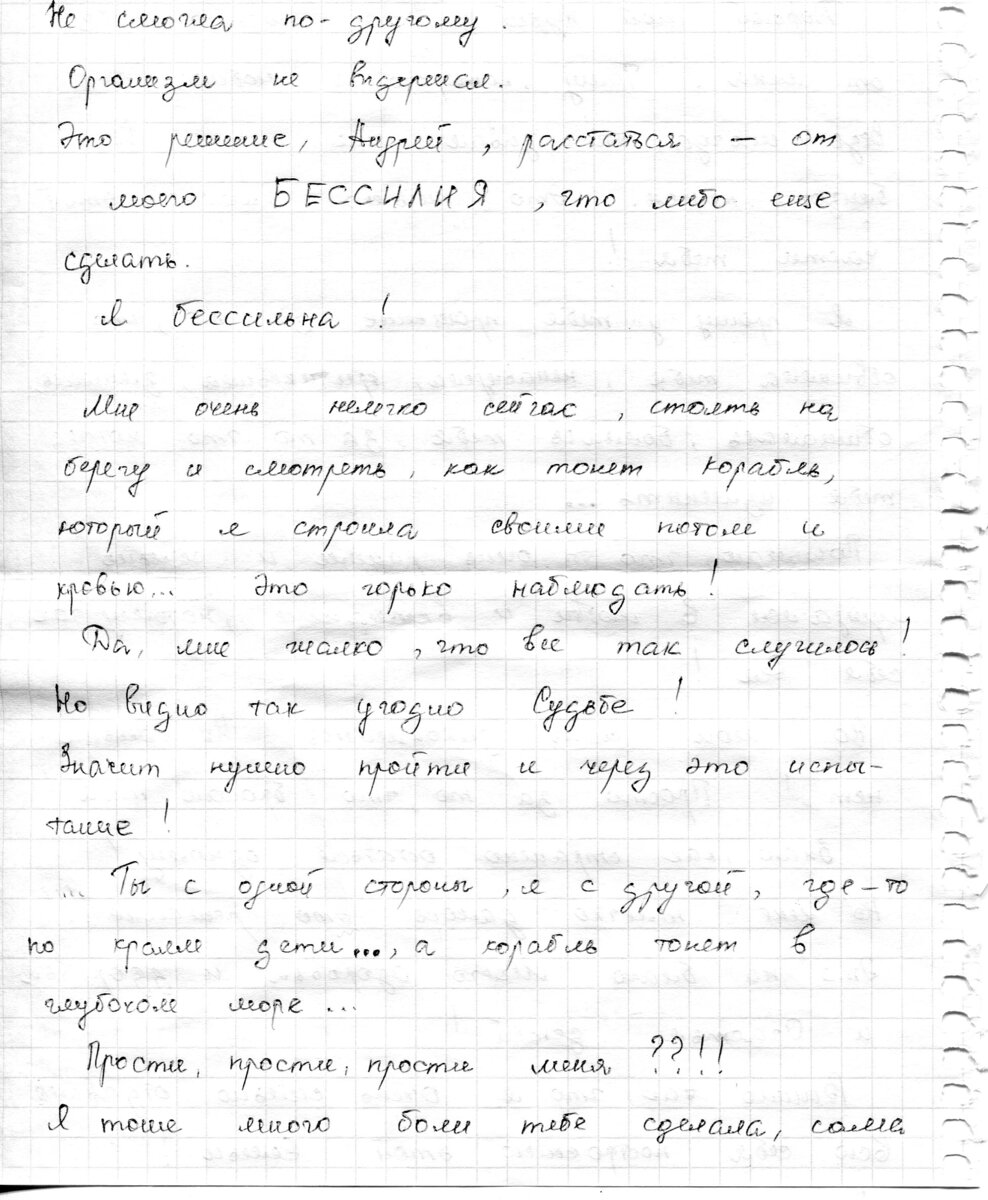 Не смогла по-другому.
Организм не выдержал.
Это решение, Андрей, расстаться – от
моего БЕССИЛИЯ, что либо еще
сделать.
Я бессильна!
Мне очень нелегко сейчас, стоять на
берегу и смотреть, как тонет корабль,
который я строила своими потом и
кровью... Это горько наблюдать!
Да, мне жалко, что все так случилось!
Но видно так угодно Судьбе!
Значит нужно пройти и через это испы-
тание!
... Ты с одной стороны, я с другой, где-то
по краям дети..., а корабль тонет в
глубоком море...
Прости, прости, прости меня ??!!
Я тоже много боли тебе сделала, сама